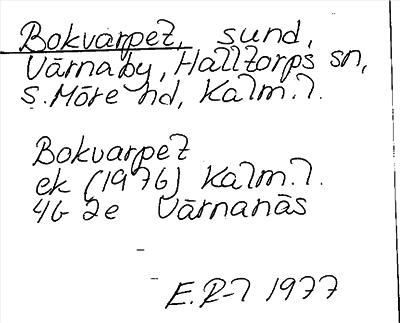 Bokvarpet, sund,
Värnaby, Halltorps sn,
S. Möre hd, Kalm. l.
Bokvarpet
ek (1976) Kalm. l.
4G 2e Värnanäs
E. R-l 1977